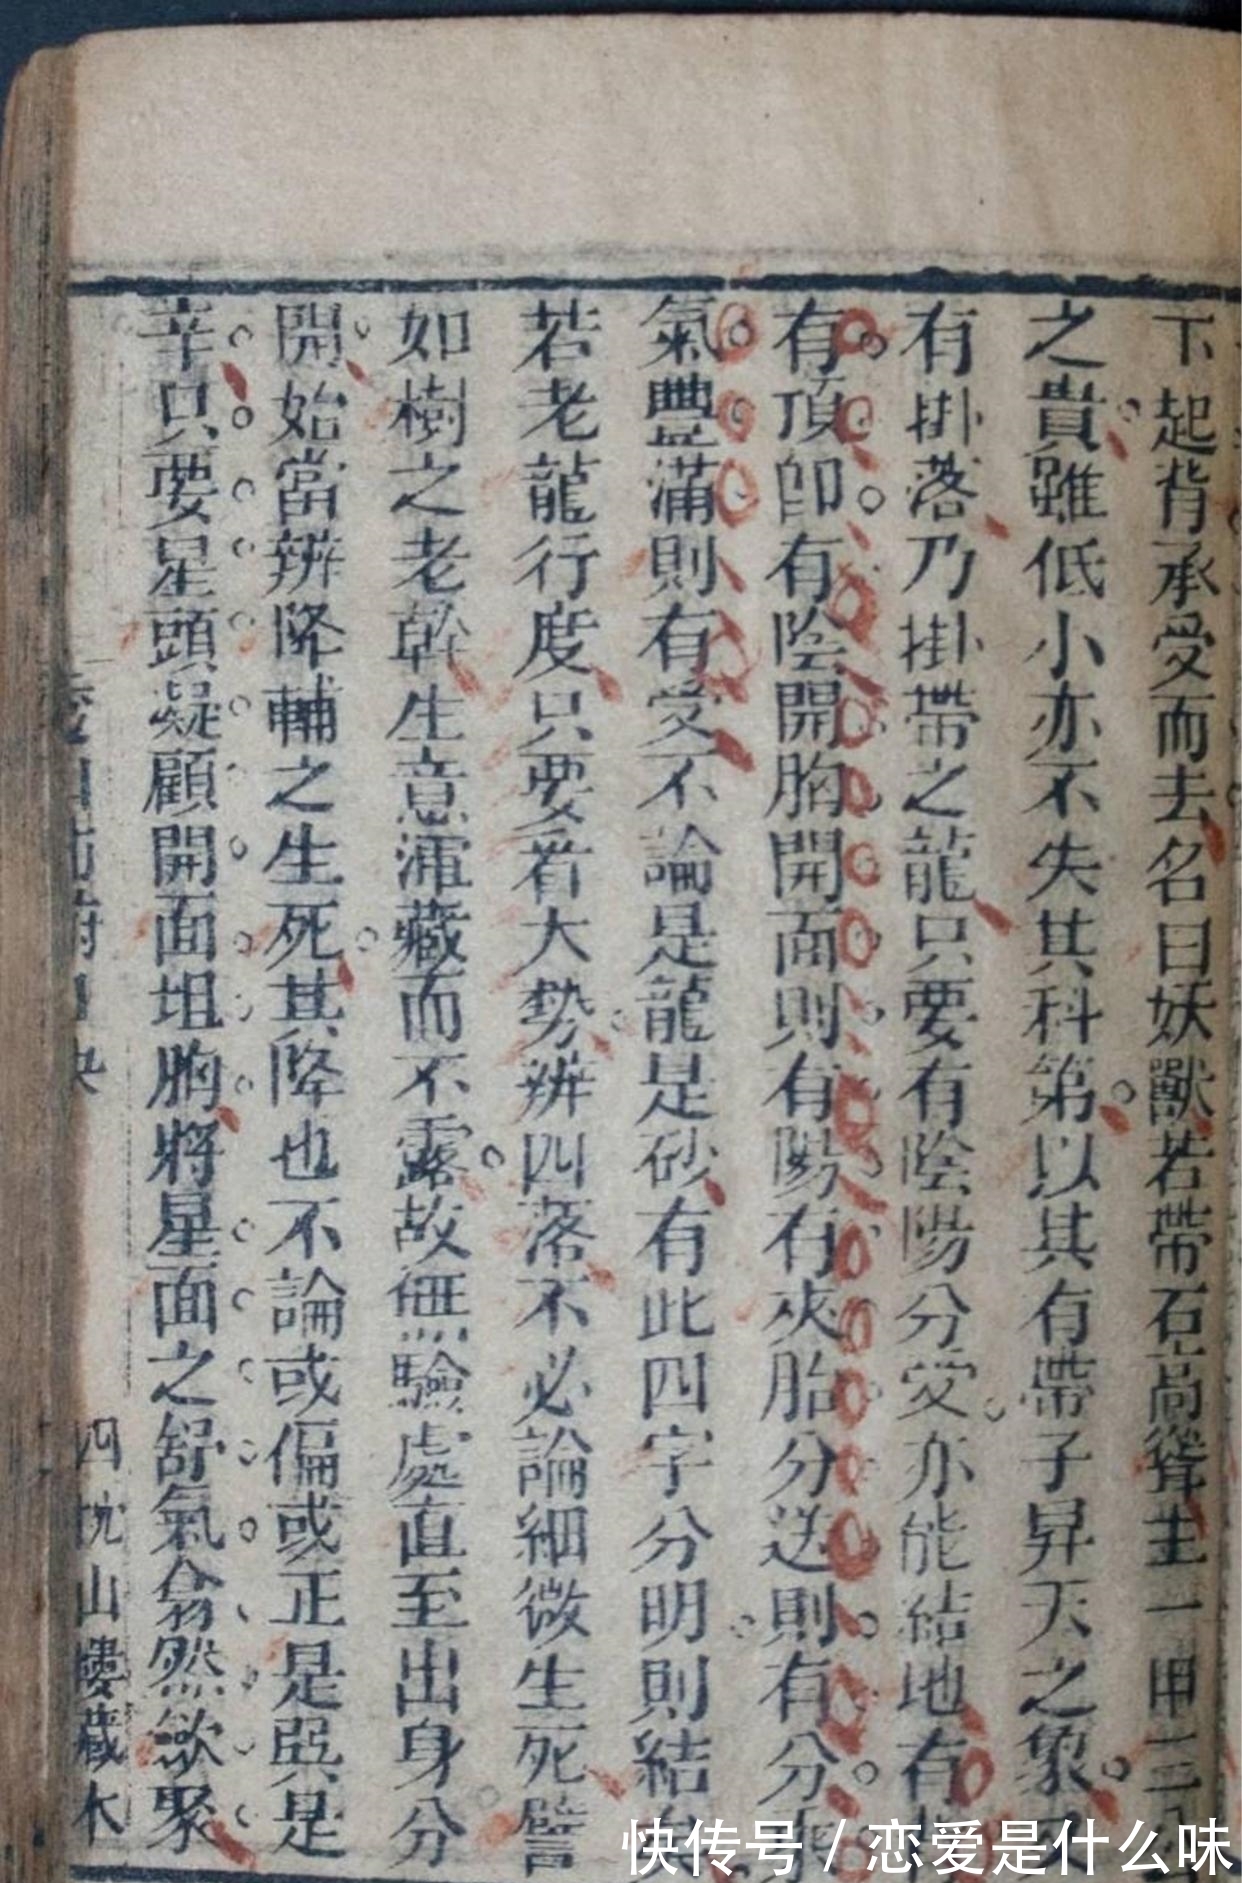 下起背承受而去名曰妖獸若帶石高聳主一甲二三
之貴雖低小亦不失其科第以其有帶子昇天之象
有掛落乃掛帶之龍只要有陰陽分受亦能結地有
有頂卽有陰開胸開面則有陽有夾胎分送則有分
氣豐滿則有受不論是龍是砂有此四字分明則結
若老龍行度只要看大勢辨四落不必論細微生死譬
如樹之老幹生意渾藏而不露故無驗處直至出身分
開始當辨降輔之生死其降也不論或偏或正是與是
辛只要星頭凝顧開面坦胸將星面之舒氣翕然歛聚
口訣 四 山樓藏木
快传号 / 恋爱是什么味